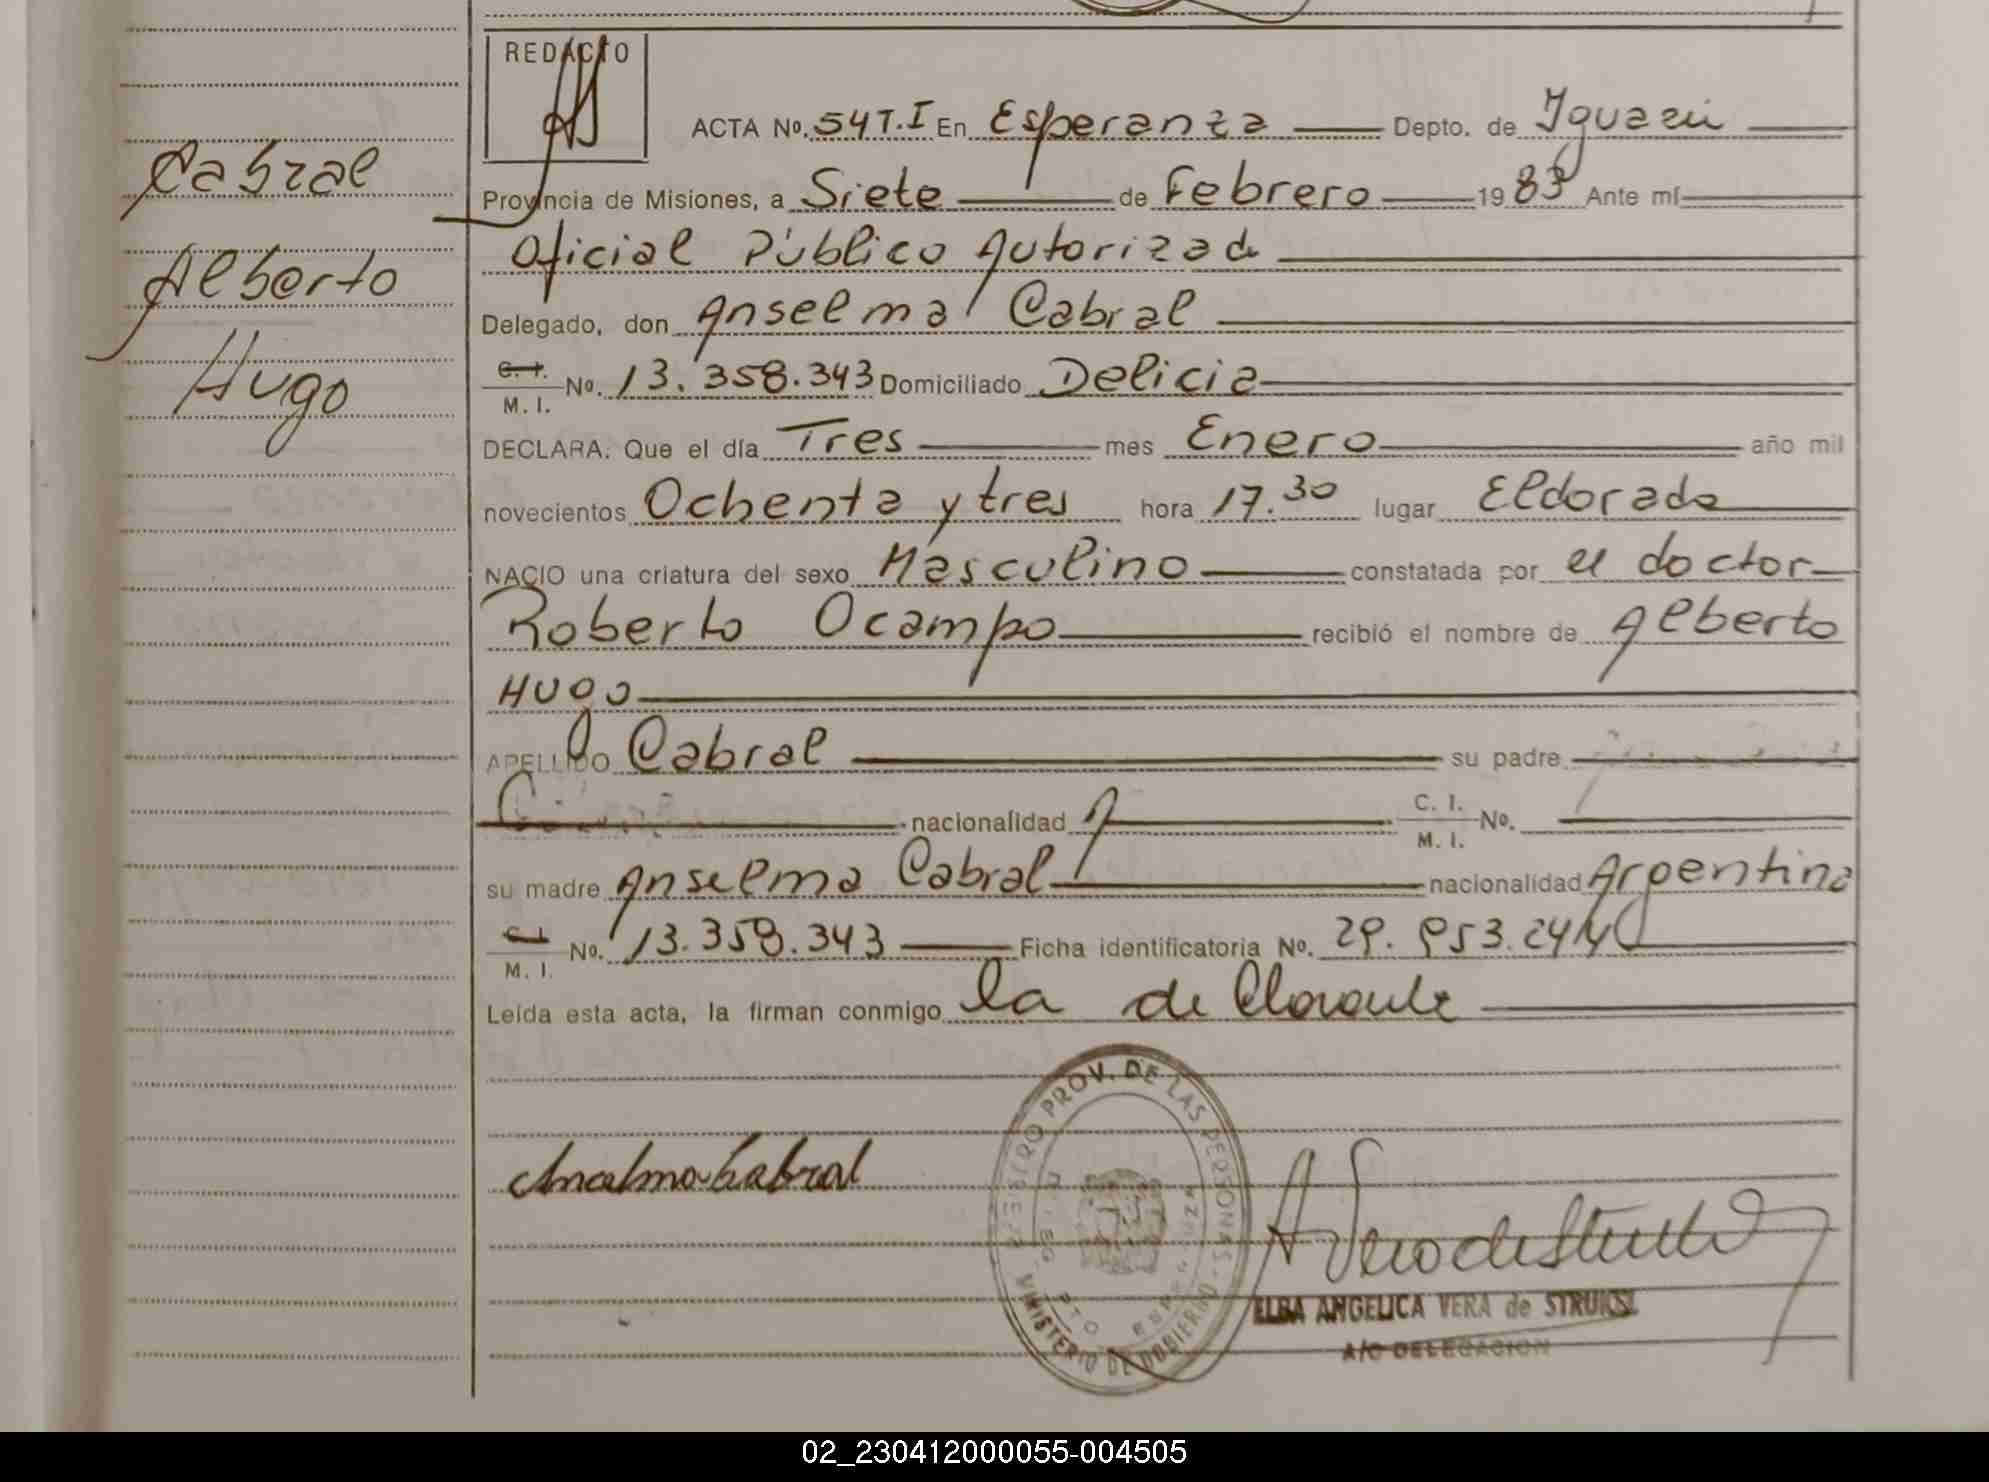 REDACTO
ACTA Nº. 54T.I En Esperanza Depto. de Iguazú
Cabral
Provincia de Misiones, a Siete de Febrero 1983 Ante mí
Oficial Público Autorizad
Alberto
Delegado, don Anselma Cabral
Hugo
C. I. M. I. Nº. 13.358.343 Domiciliado Delicia
DECLARA: Que el día Tres mes Enero año mil
novecientos Ochenta y tres hora 17.30 lugar Eldorado
NACIO una criatura del sexo Masculino constatada por el doctor
Roberto Ocampo recibió el nombre de Alberto
Hugo
APELLIDO Cabral su padre
nacionalidad C. I. M. I. Nº.
su madre Anselma Cabral nacionalidad Argentina
C. I. M. I. Nº. 13.358.343 Ficha identificatoria Nº. 29.953.244
Leída esta acta, la firman conmigo la declarante
REGISTRO PROV. DE LAS PERSONAS
MINISTERIO DE GOBIERNO
Anselma Cabral
ELBA ANGELICA VERA de STRUKSL
A/C DELEGACION
02_230412000055-004505